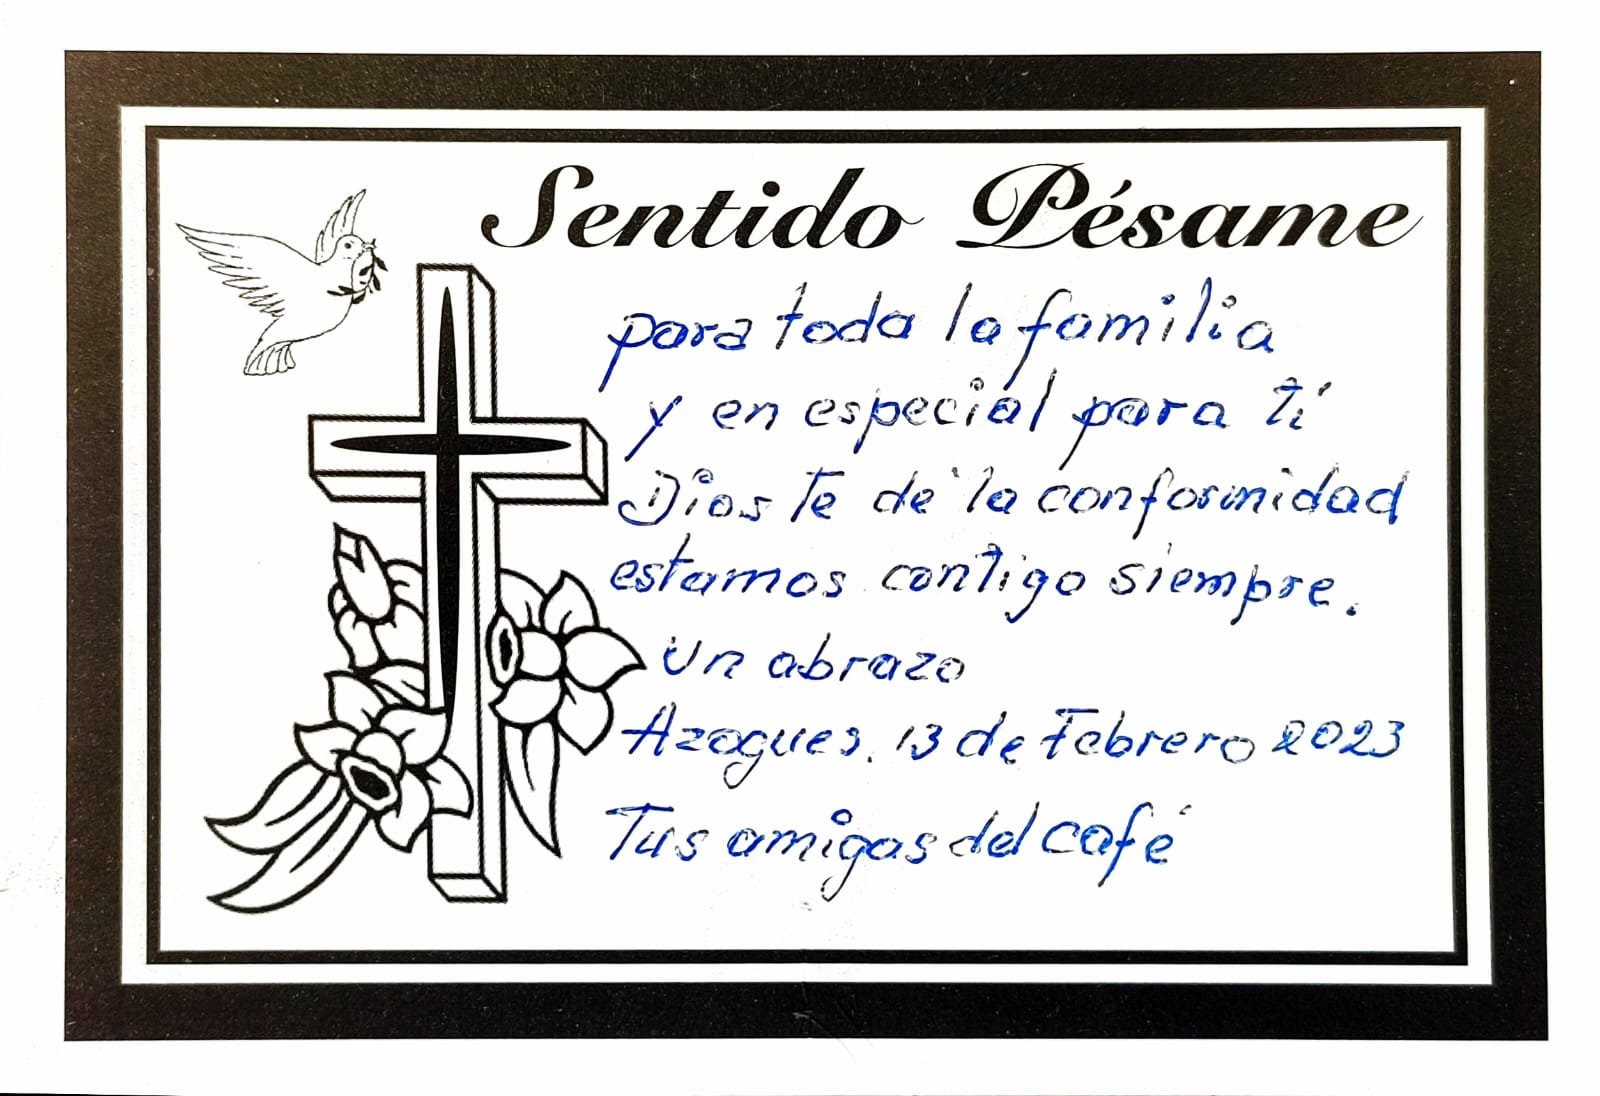 Sentido Pésame
para toda la familia
y en especial para tí
Dios te de la conformidad
estamos contigo siempre.
Un abrazo
Azogues. 13 de Febrero 2023
Tus amigas del café